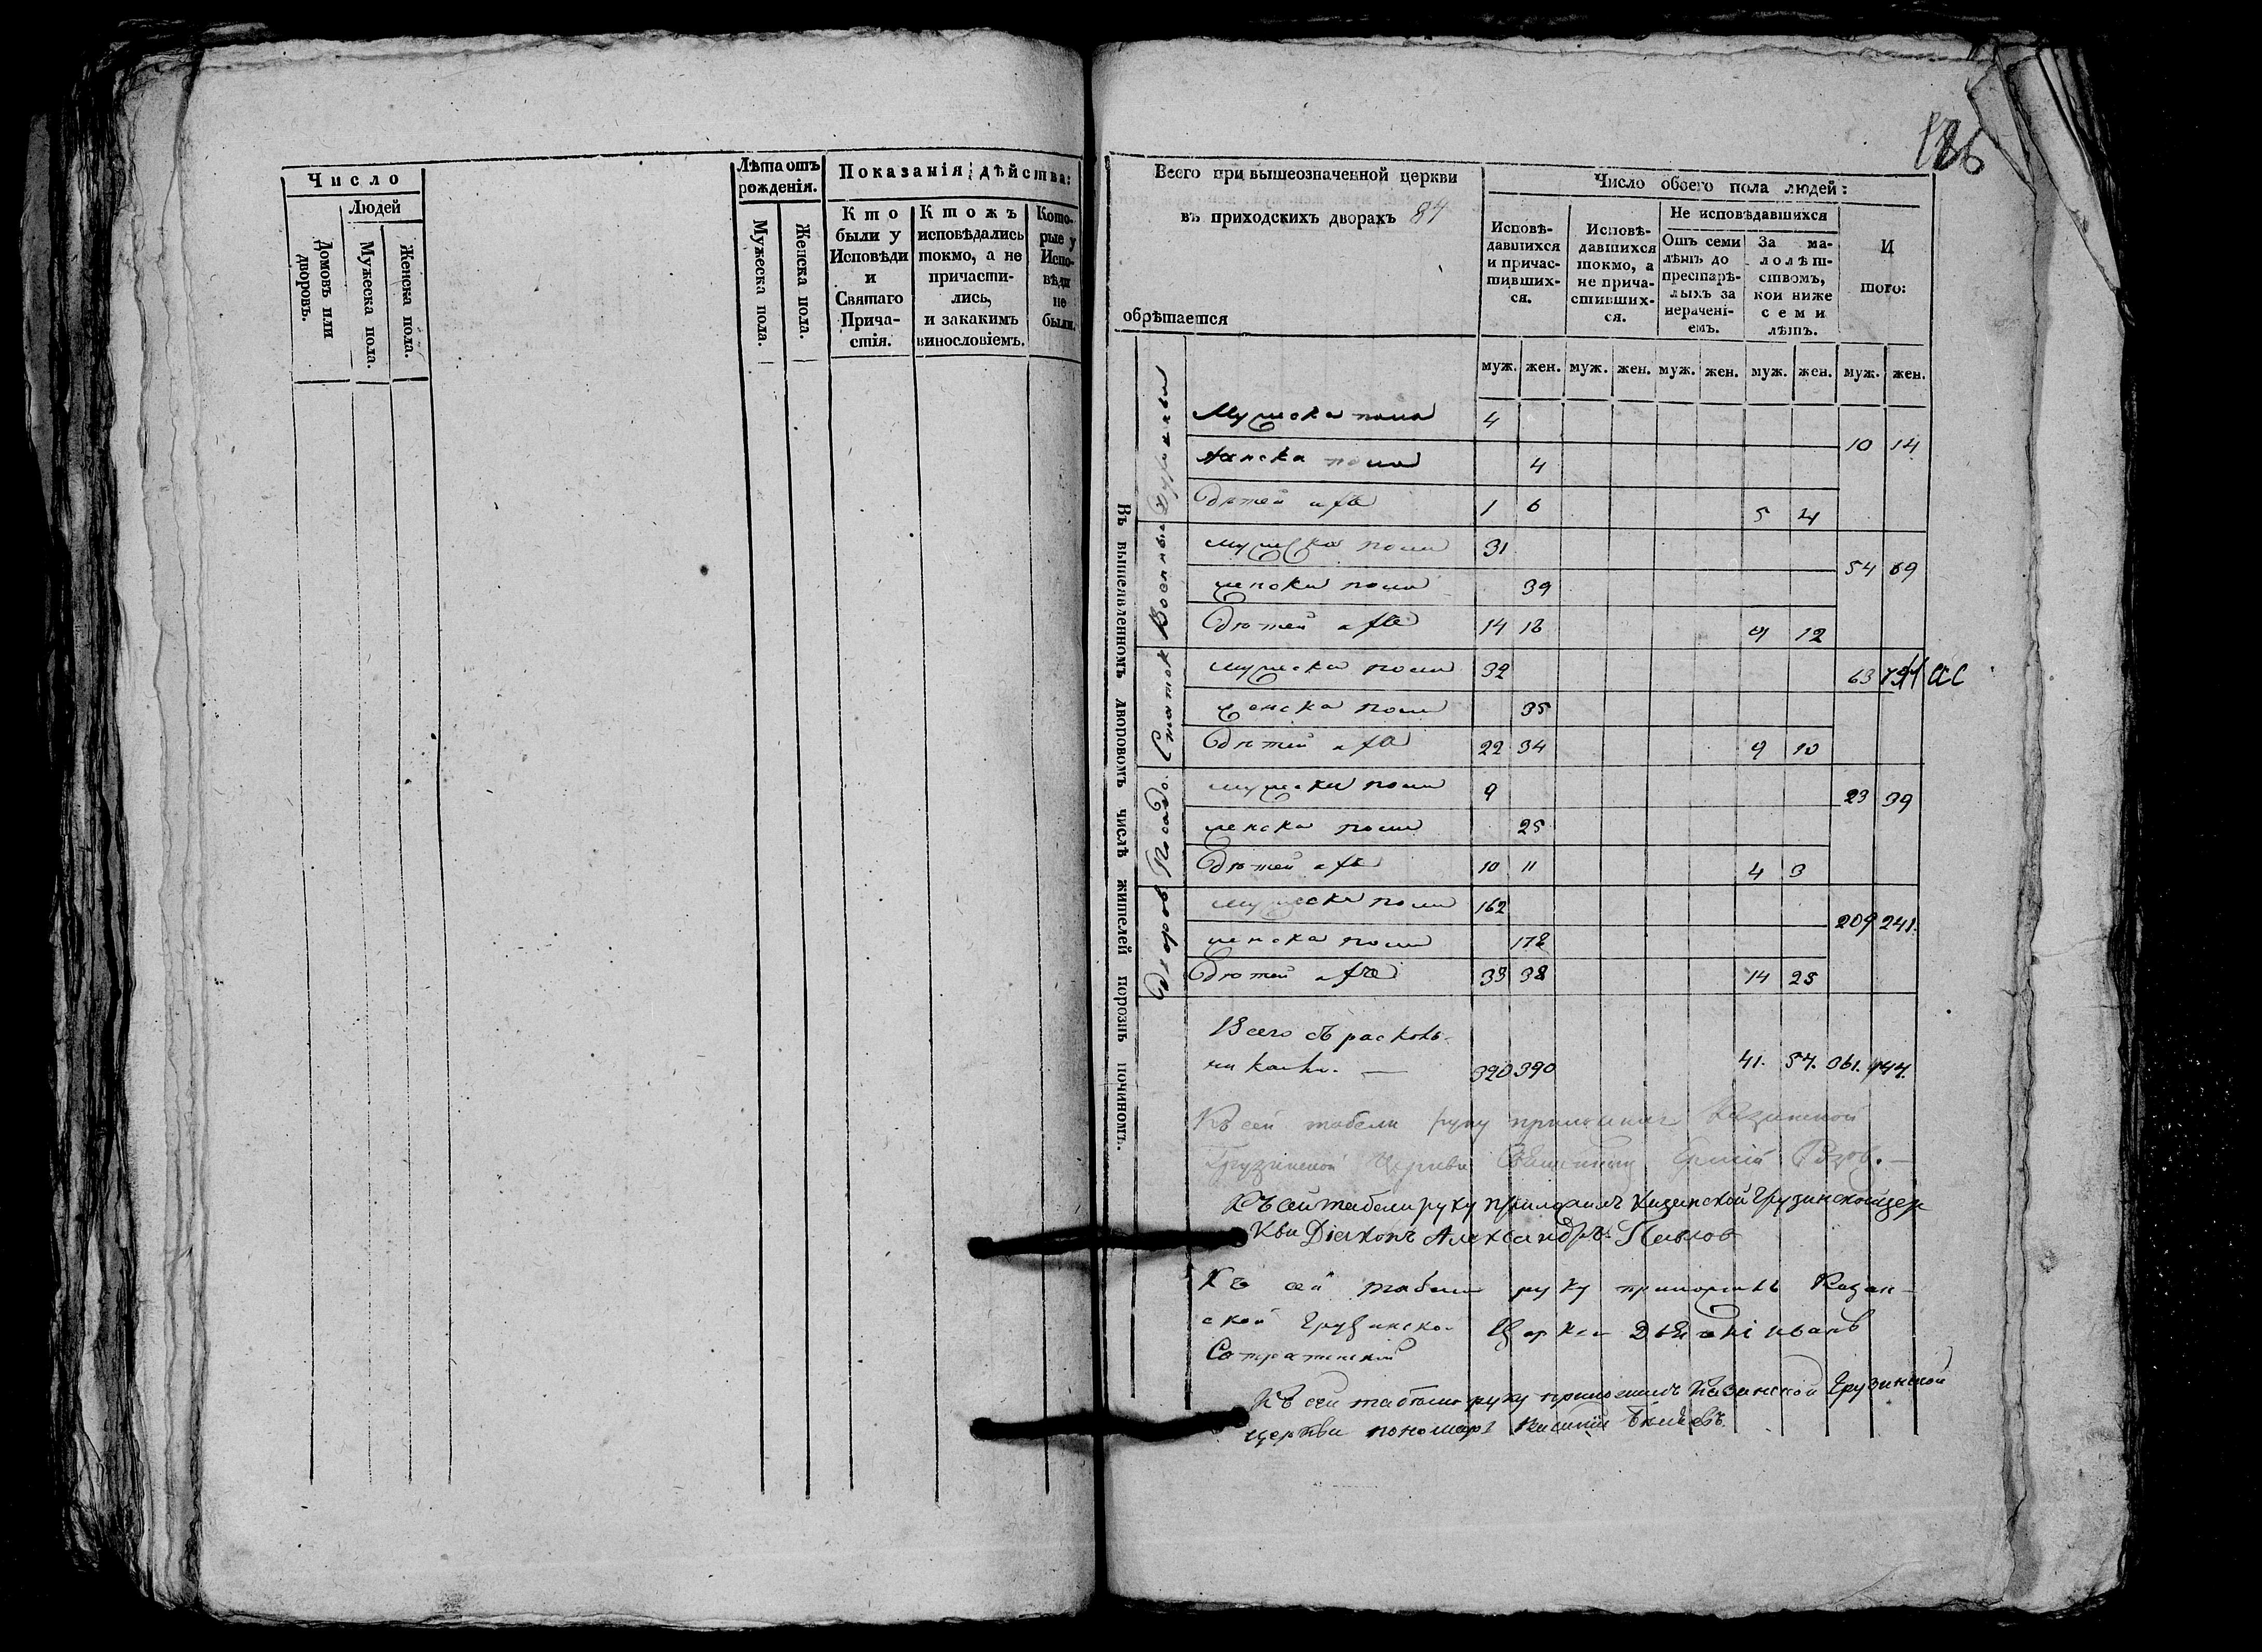 Число
Людей
Домовъ или дворовъ.
Мужеска пола
Женска пола.
Лѣта отъ рожденія.
Мужеска пола.
Женска пола.
Показанія дѣйства:
Кто были у Исповѣди и Святаго Причастія.
Ктожъ исповѣдались токмо, а не причастились, и закакимъ винословіемъ.
Которые у Исповѣди не были.
126
Всего при вышеозначенной церкви
въ приходскихъ дворахъ 84
обрѣтается
Число обоего пола людей:
Исповѣдавшихся и причастившихся.
Исповѣдавшихся токмо, а не причастившихся.
Не исповѣдавшихся
Отъ семи лѣтъ до престарѣлыхъ за нерачені-емъ.
За малолѣтствомъ, кои ниже семи лѣтъ.
И того:
муж. жен. муж. жен. муж. жен. муж. жен. муж. жен.
Въ вышеявленномъ дворовомъ числѣ жителей порознь починомъ.
Духовны
Мужеска пола 4
10 14
Женска пола 4
Дѣтей ихъ 1 6 5 4
Военны
мужеска пола 31
54 69
женска пола 39
Дѣтей ихъ 14 18 9 12
Статск
мужеска пола 32
63 79
женска пола 35
Дѣтей ихъ 22 34 9 10
Посадс.
мужеска пола 9
23 39
женска пола 25
Дѣтей ихъ 10 11 4 3
Дворов
мужеска пола 162
209 241.
женска пола 178
Дѣтей ихъ 33 38 14 25
Всего съ расколь-
никами. — 320 390 41. 54. 361. 444.
Къ сей табели руку приложилъ Казанской
Грузинской Церкви Священникъ
Къ сей табели руку приложилъ Казанской Грузинской цер
кви Діаконъ Александръ Павлов
Къ сей табели руку приложилъ Казан-
ской Грузинской Церкви Иванъ
Къ сей табели руку приложилъ Казанской Грузинской
церкви пономарь